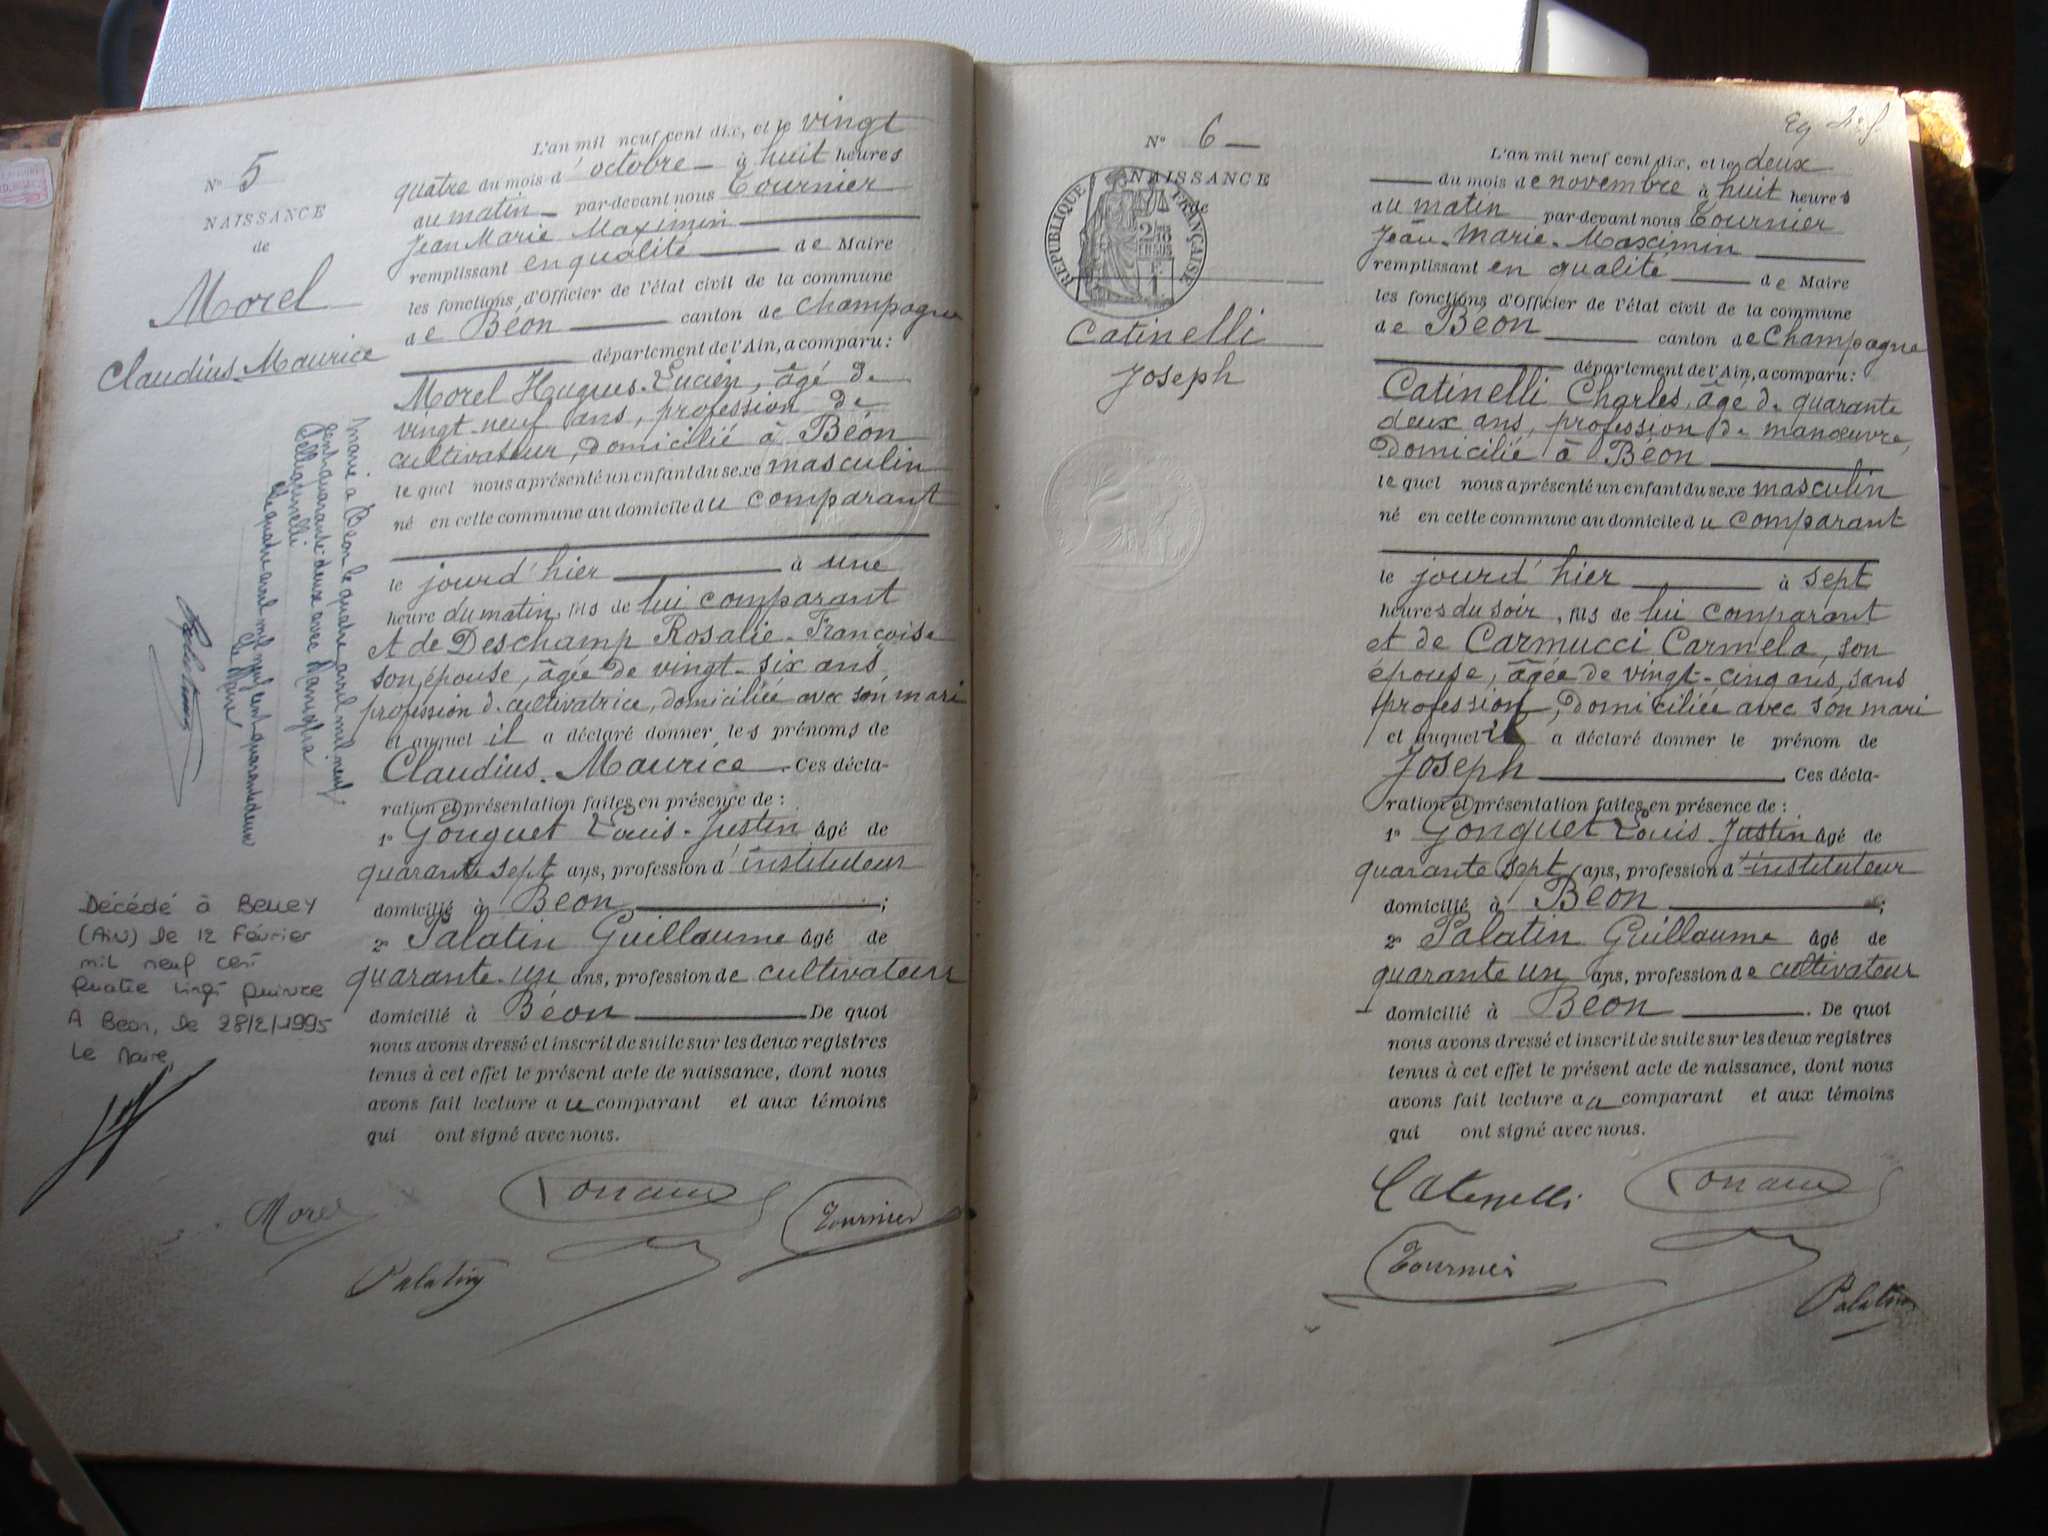 N° 5
NAISSANCE
de
Morel
Claudius Maurice
L'an mil neuf cent dix, et le vingt
quatre du mois d'octobre à huit heures
du matin par-devant nous Tournier
Jean Marie Maximin
remplissant en qualité de Maire
les fonctions d'Officier de l'état civil de la commune
de Béon canton de Champagne
département de l'Ain, a comparu :
Morel Hugues-Lucien, âgé de
vingt-neuf ans, profession de
cultivateur, domicilié à Béon
lequel nous a présenté un enfant du sexe masculin
né en cette commune au domicile du comparant
le jour d'hier à une
heure du matin, fils de lui comparant
et de Deschamp Rosalie-Françoise
son épouse, âgée de vingt-six ans,
profession de cultivatrice, domiciliée avec son mari
et auquel il a déclaré donner les prénoms de
Claudius-Maurice. Ces décla-
ration et présentation faites en présence de :
1° Gonguet Louis-Justin âgé de
quarante sept ans, profession d'instituteur
domicilié à Béon ;
2° Palatin Guillaume âgé de
quarante-un ans, profession de cultivateur
domicilié à Béon De quoi
nous avons dressé et inscrit de suite sur les deux registres
tenus à cet effet le présent acte de naissance, dont nous
avons fait lecture au comparant et aux témoins
qui ont signé avec nous.
Morel
Tournier
Palatin
Marié à Béon le quatre avril mil neuf
cent quarante-deux avec
Le quatre avril mil neuf cent quarante deux
Le Maire
Décédé à Belley
(Ain) le 12 Février
mil neuf cent
quatre vingt quinze
A Béon, le 28/2/1995
Le Maire,
N° 6
NAISSANCE
de
RÉPUBLIQUE FRANÇAISE
Catinelli
Joseph
L'an mil neuf cent dix, et le deux
du mois de novembre à huit heures
du matin par-devant nous Tournier
Jean-Marie-Maximin
remplissant en qualité de Maire
les fonctions d'Officier de l'état civil de la commune
de Béon canton de Champagne
département de l'Ain, a comparu :
Catinelli Charles, âgé de quarante
deux ans, profession de manœuvre,
domicilié à Béon
lequel nous a présenté un enfant du sexe masculin
né en cette commune au domicile du comparant
le jour d'hier à sept
heures du soir, fils de lui comparant
et de Carmucci Carmela, son
épouse, âgée de vingt-cinq ans, sans
profession, domiciliée avec son mari
et auquel il a déclaré donner le prénom de
Joseph Ces décla-
ration et présentation faites en présence de :
1° Gonguet Louis Justin âgé de
quarante sept ans, profession d'instituteur
domicilié à Béon ;
2° Palatin Guillaume âgé de
quarante un ans, profession de cultivateur
domicilié à Béon. De quoi
nous avons dressé et inscrit de suite sur les deux registres
tenus à cet effet le présent acte de naissance, dont nous
avons fait lecture au comparant et aux témoins
qui ont signé avec nous.
Catinelli
Tournier
Palatin